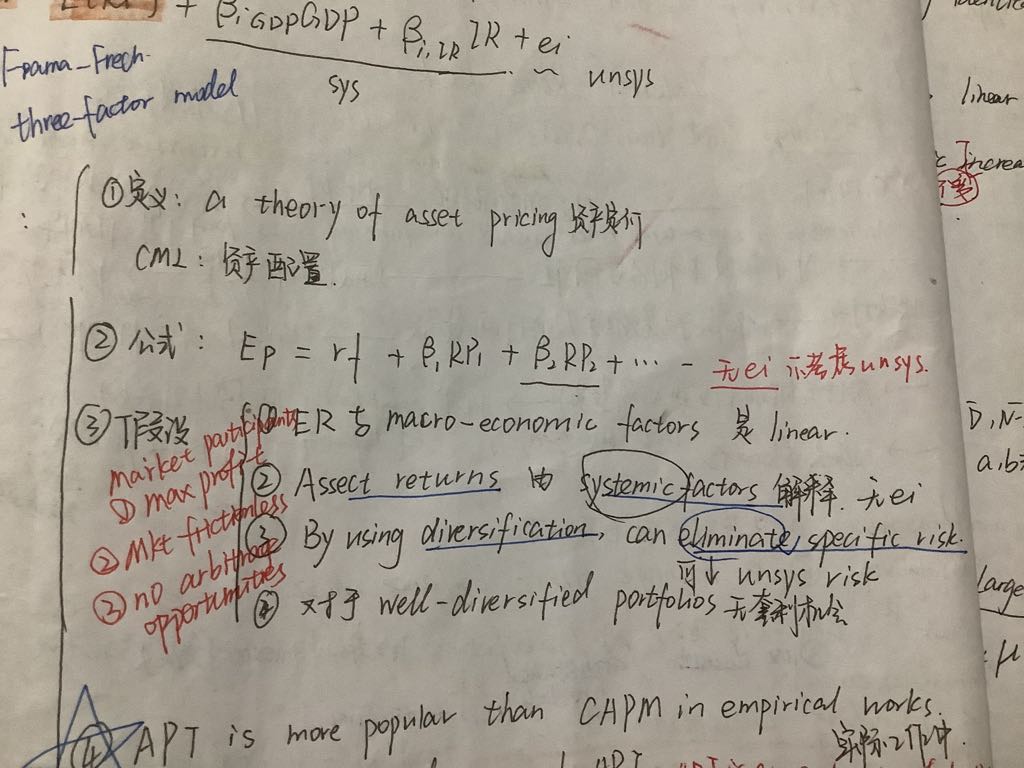 + βi GDP GDP + βi,IR IR + ei
sys
unsys
Fpama-Frech
three-factor model
linear
increa
①定义: a theory of asset pricing 资产定价
CML: 资产配置.
②公式: Ep = rf + β₁RP₁ + β₂RP₂ + ··· - 无ei 不考虑unsys.
③假设
market participants
① max profit
② Mkt frictionless
③ no arbitrage
opportunities
① ER与 macro-economic factors 是 linear.
② Assect returns 由 systemic factors 解释. 无ei
③ By using diversification, can eliminate specific risk.
可↓ unsys risk
④ 对于 well-diversified portfolios 无套利机会
D,N-
a,b
Large
: μ
④ APT is more popular than CAPM in empirical works.
实际工作中.
APT